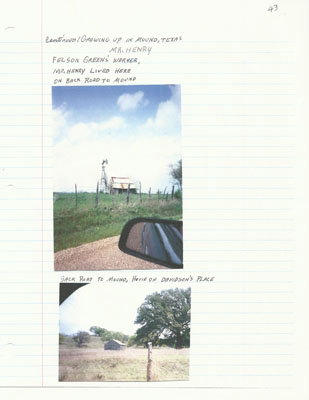 43
(CONTINUED) GROWING UP IN MOUND, TEXAS
MR. HENRY
FELSOR GREENS' WORKER,
MR. HENRY LIVED HERE
ON BACK ROAD TO MOUND
BACK ROAD TO MOUND, HOUSE ON DAVIDSON'S PLACE